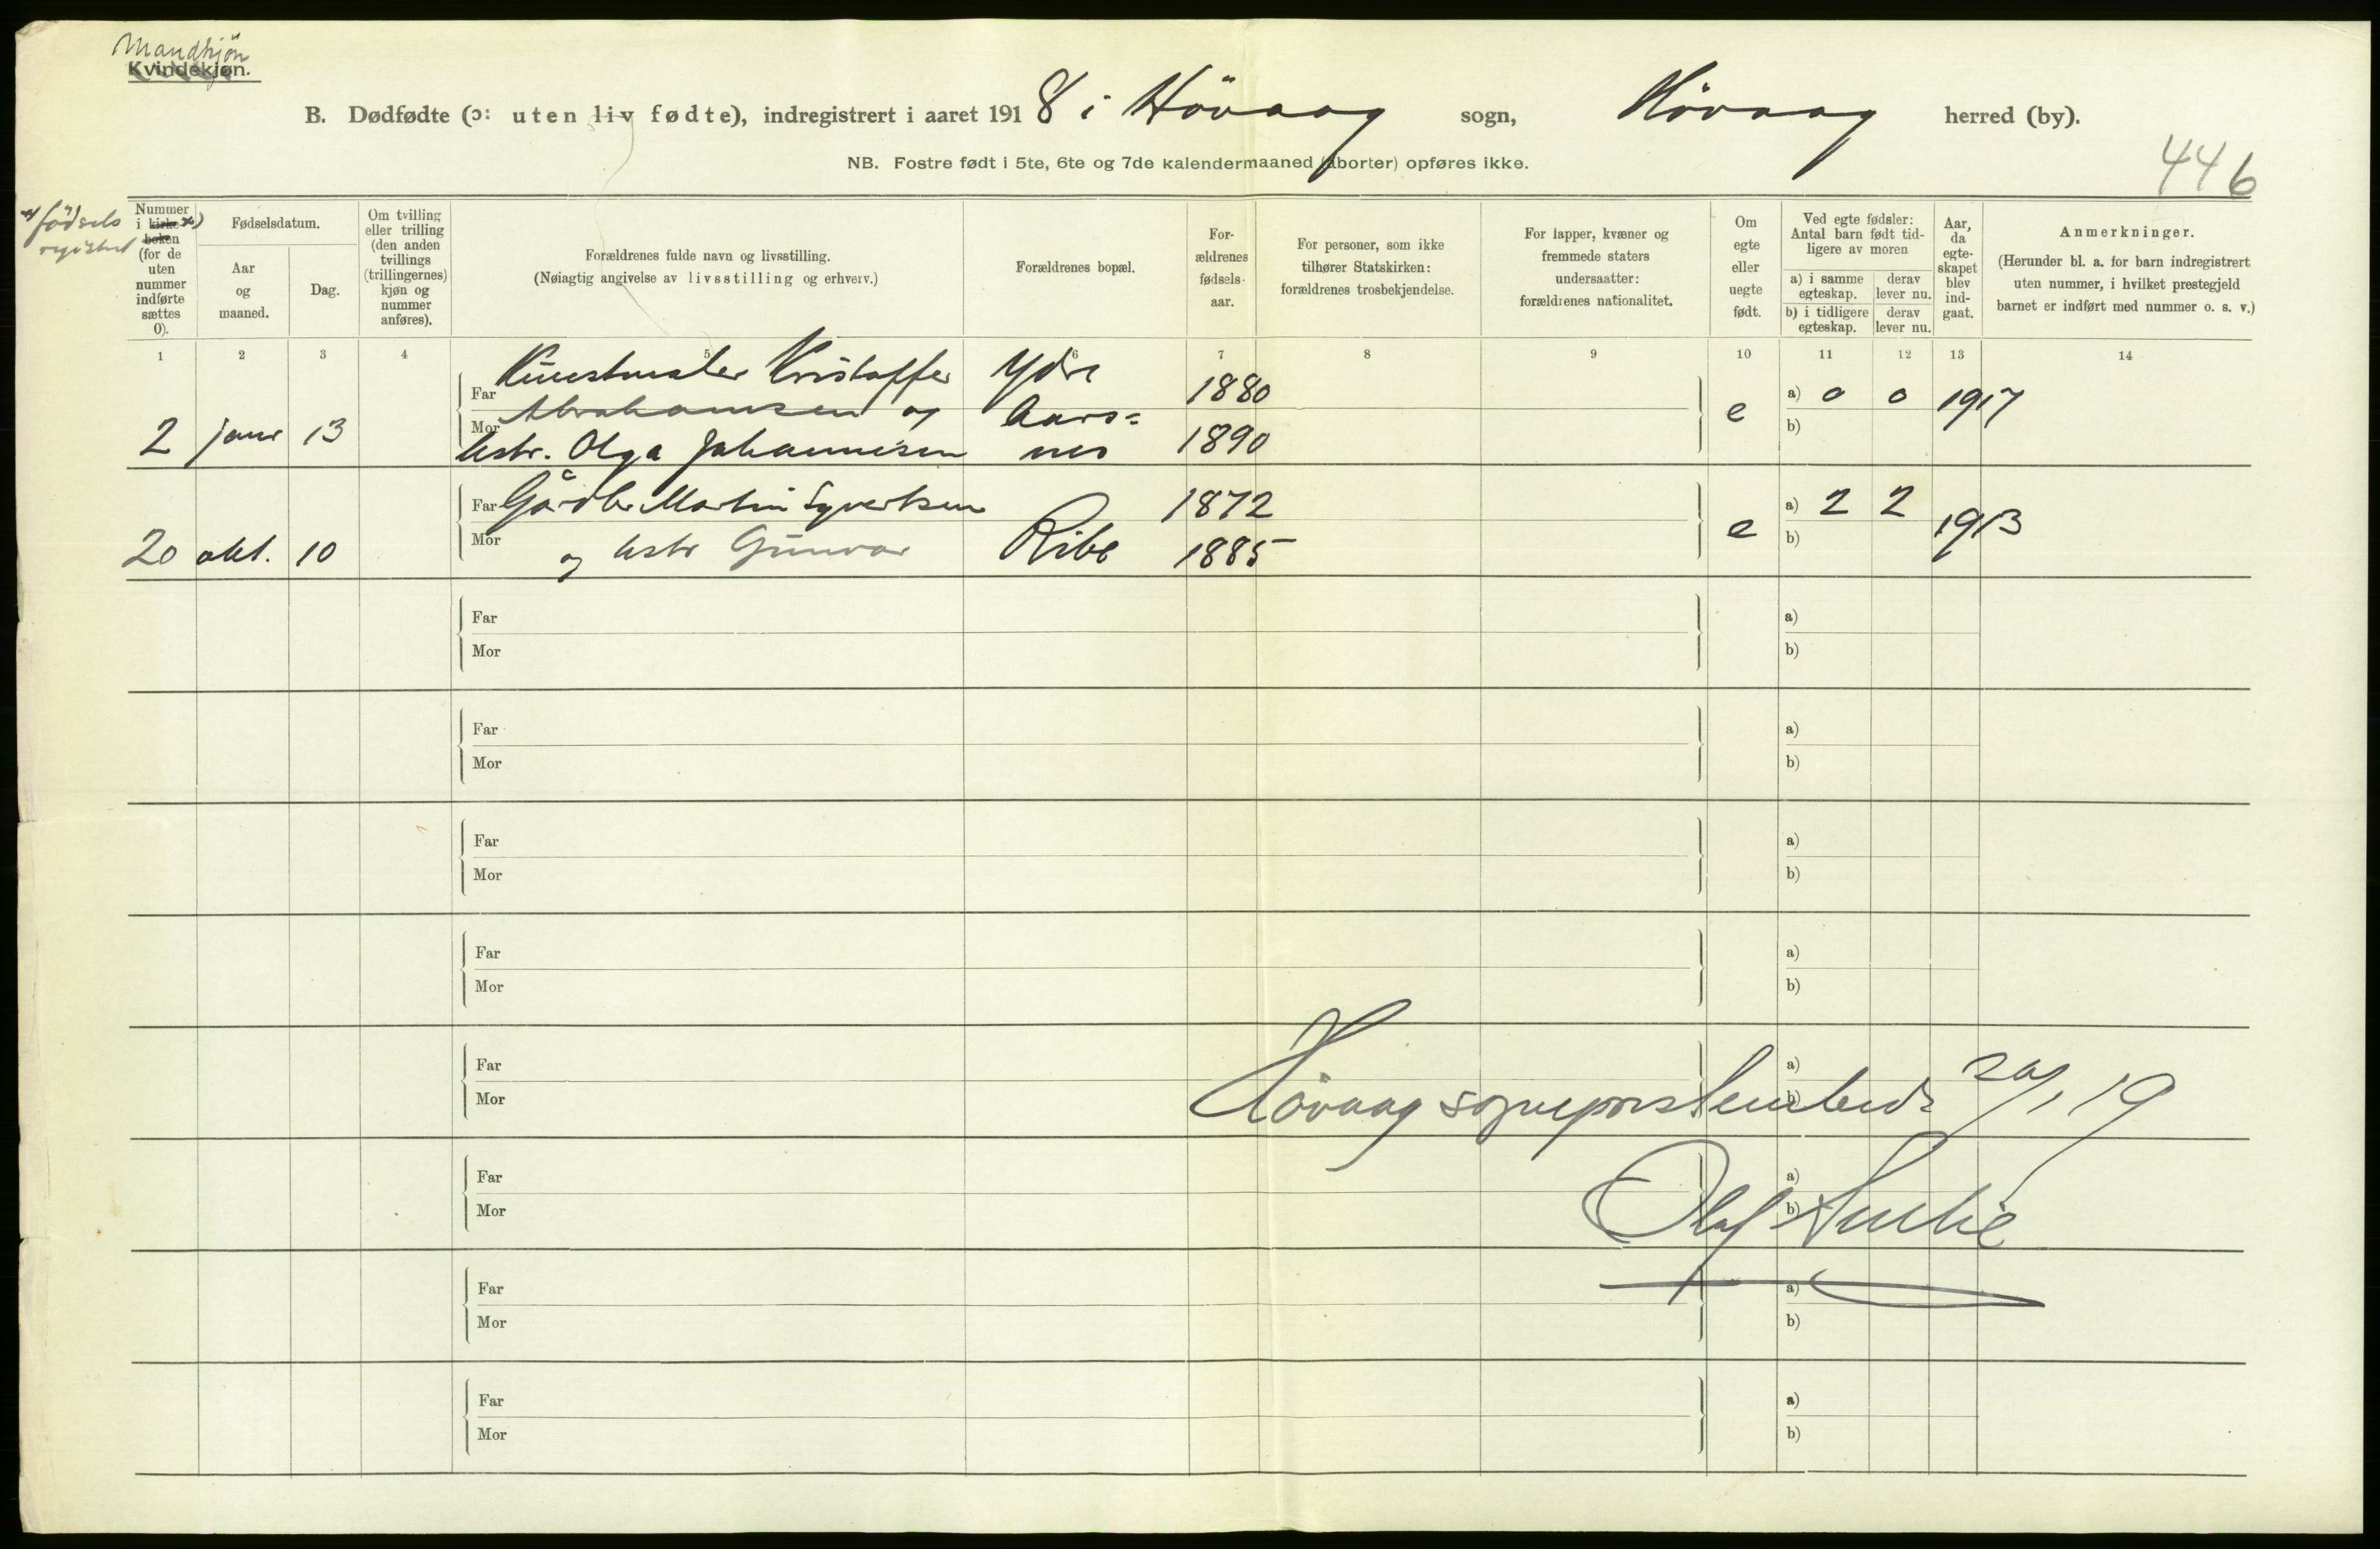 Mandkjön
Kvindekjøn.
B. Dødfødte (ɔ: uten liv fødte), indregistrert i aaret 1918 i Hövaag sogn, Hövaag herred (by).
NB. Fostre født i 5te, 6te og 7de kalendermaaned (aborter) opføres ikke.
446
x) födsels
registret
Nummer
i kirke- x)
boken
(for de
uten
nummer
indførte
sættes
0).
Fødselsdatum.
Aar
og
maaned.
Dag.
Om tvilling
eller trilling
(den anden
tvillings
(trillingernes)
kjøn og
nummer
anføres).
Forældrenes fulde navn og livsstilling.
(Nøiagtig angivelse av livsstilling og erhverv.)
Forældrenes bopæl.
For-
ældrenes
fødsels-
aar.
For personer, som ikke
tilhører Statskirken:
forældrenes trosbekjendelse.
For lapper, kvæner og
fremmede staters
undersaatter:
forældrenes nationalitet.
Om
egte
eller
uegte
født.
Ved egte fødsler:
Antal barn født tid-
ligere av moren
a) i samme
egteskap.
derav
lever nu.
b) i tidligere
egteskap.
derav
lever nu.
Aar,
da
egte-
skapet
blev
ind-
gaat.
Anmerkninger.
(Herunder bl. a. for barn indregistrert
uten nummer, i hvilket prestegjeld
barnet er indført med nummer o. s. v.)
1 2 3 4 5 6 7 8 9 10 11 12 13 14
Kunstmaler Kristoffer Ydre
Far Abrahamsen og Aars= 1880 a) 0 0 1917
2 janr 13 Mor hstr. Olga Johannesen nes 1890 e b)
Far Gårdbr Martin Syvertsen 1872 a) 2 2 1913
20 okt. 10 Mor og hstr Gunvor Ribe 1885 e b)
Far a)
Mor b)
Far a)
Mor b)
Far a)
Mor b)
Far a)
Mor b)
Far a)
Mor b)
Hövaag sogneprestembede 20/1 19
Far a)
Mor b)
Olaf
Far a)
Mor b)
Far a)
Mor b)